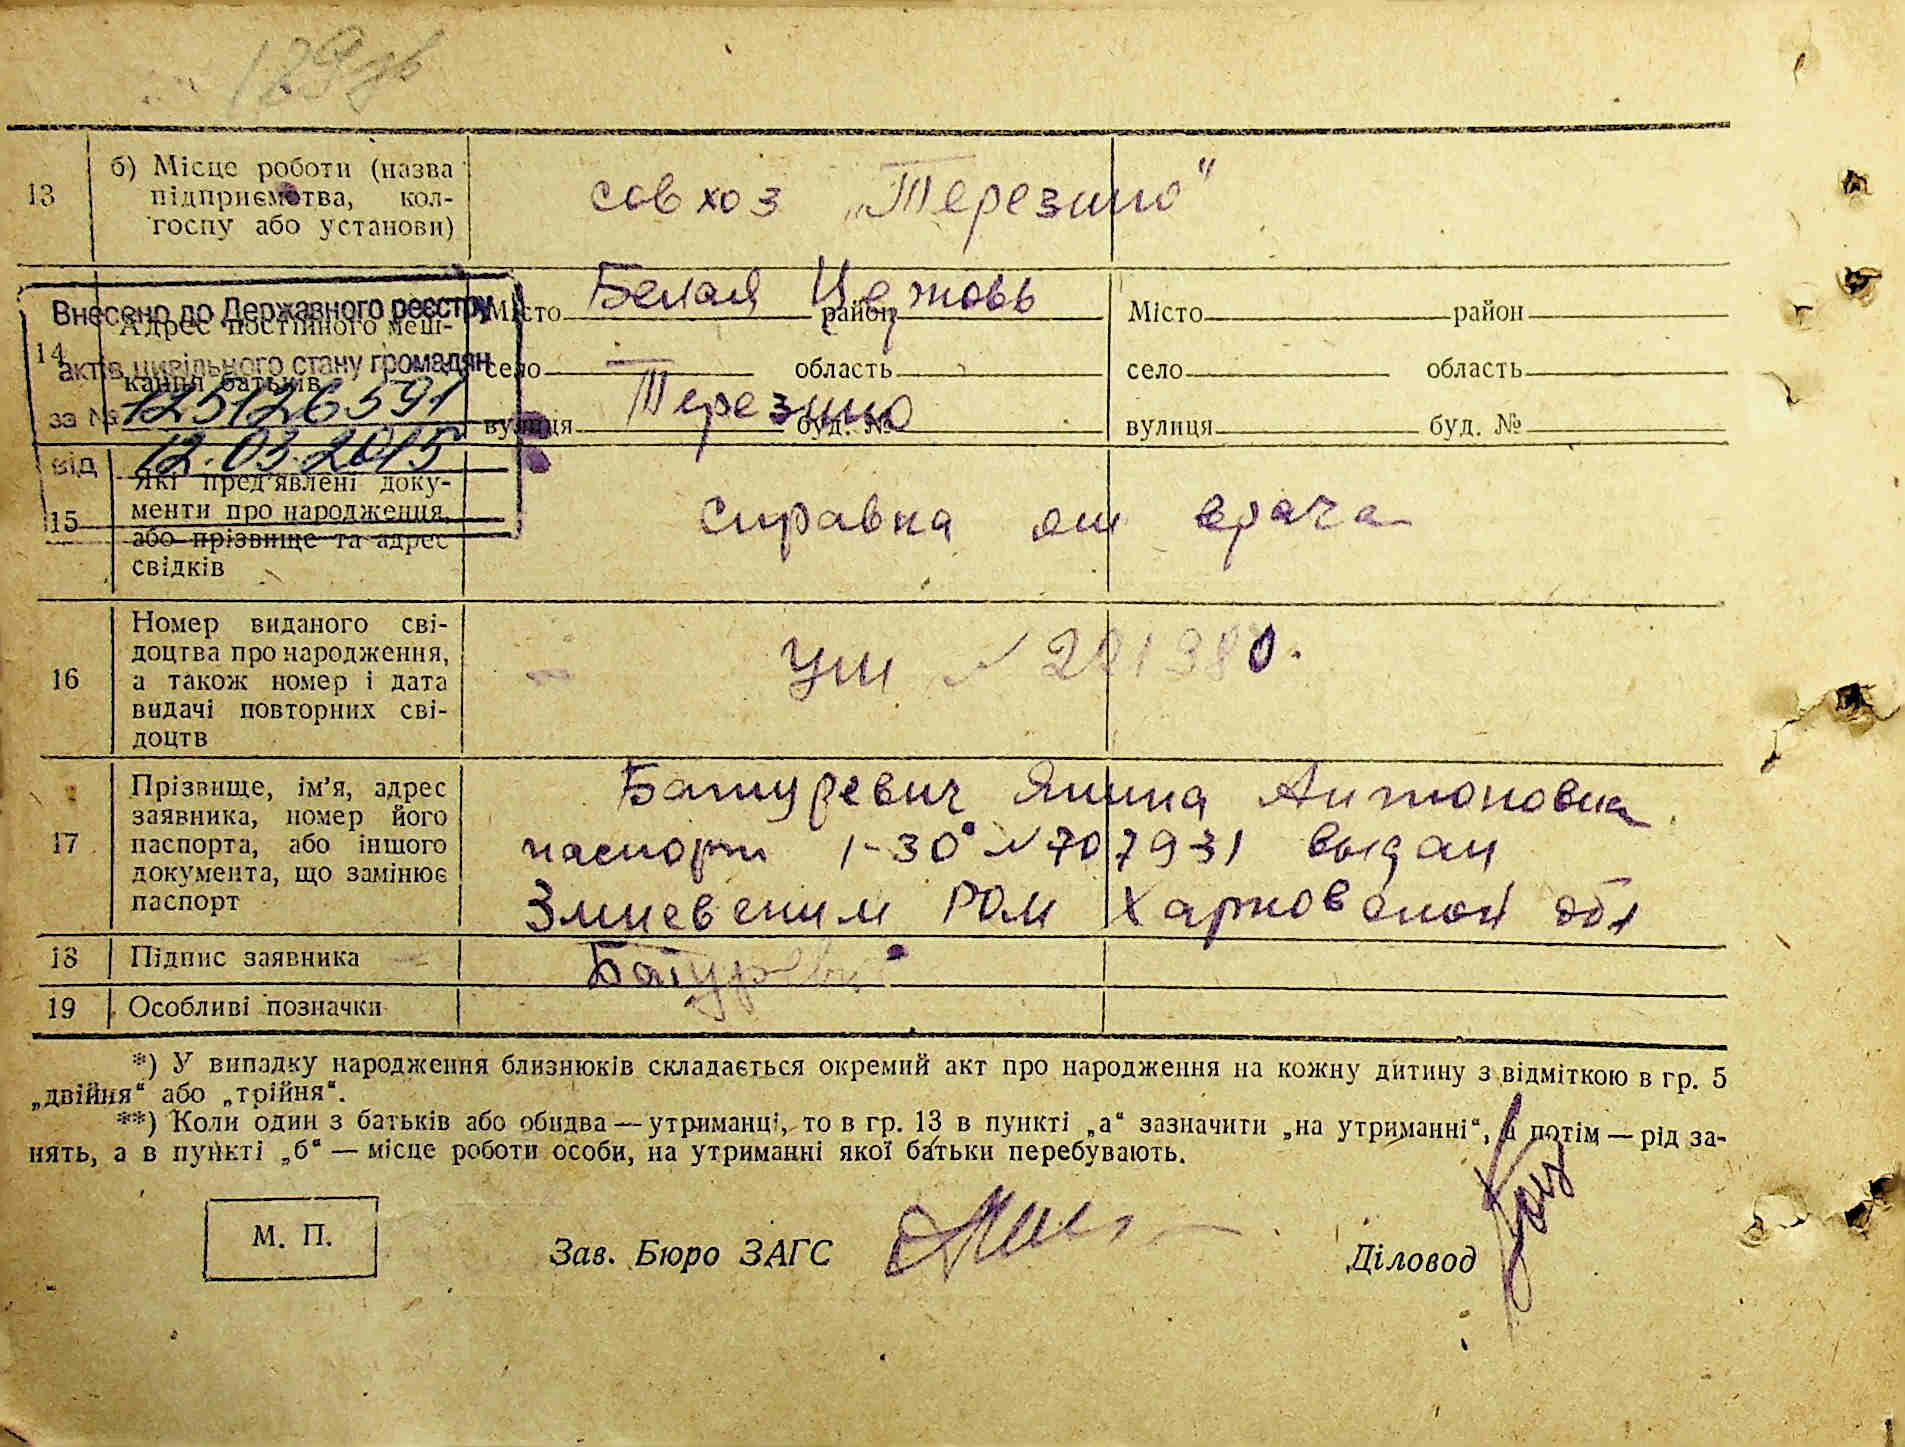 189
13
б) Місце роботи (назва
підприємства, кол-
госпу або установи)
совхоз „Терезино"
14
Адрес постійного меш-
кання батьків
Внесено до Державного реєстру
актів цивільного стану громадян
за № 125126591
від 12.03.2015
Місто Белая Церковь район
село область
Терезино
вулиця буд. №
Місто район
село область
вулиця буд. №
15
Які пред'явлені доку-
менти про народження,
або прізвище та адрес
свідків
справка от врача
16
Номер виданого сві-
доцтва про народження,
а також номер і дата
видачі повторних сві-
доцтв
№ 221380.
17
Прізвище, ім'я, адрес
заявника, номер його
паспорта, або іншого
документа, що замінює
паспорт
Батуревич Янина Антоновна
паспорт 1-30 № 707931 выдан
Змиевским РОМ Харковской обл
18
Підпис заявника
Батуревич
19
Особливі позначки
*) У випадку народження близнюків складається окремий акт про народження на кожну дитину з відміткою в гр. 5
„двійня“ або „трійня“.
**) Коли один з батьків або обидва — утриманці, то в гр. 13 в пункті „а“ зазначити „на утриманні“, а потім — рід за-
нять, а в пункті „б“ — місце роботи особи, на утриманні якої батьки перебувають.
М. П.
Зав. Бюро ЗАГС
Діловод